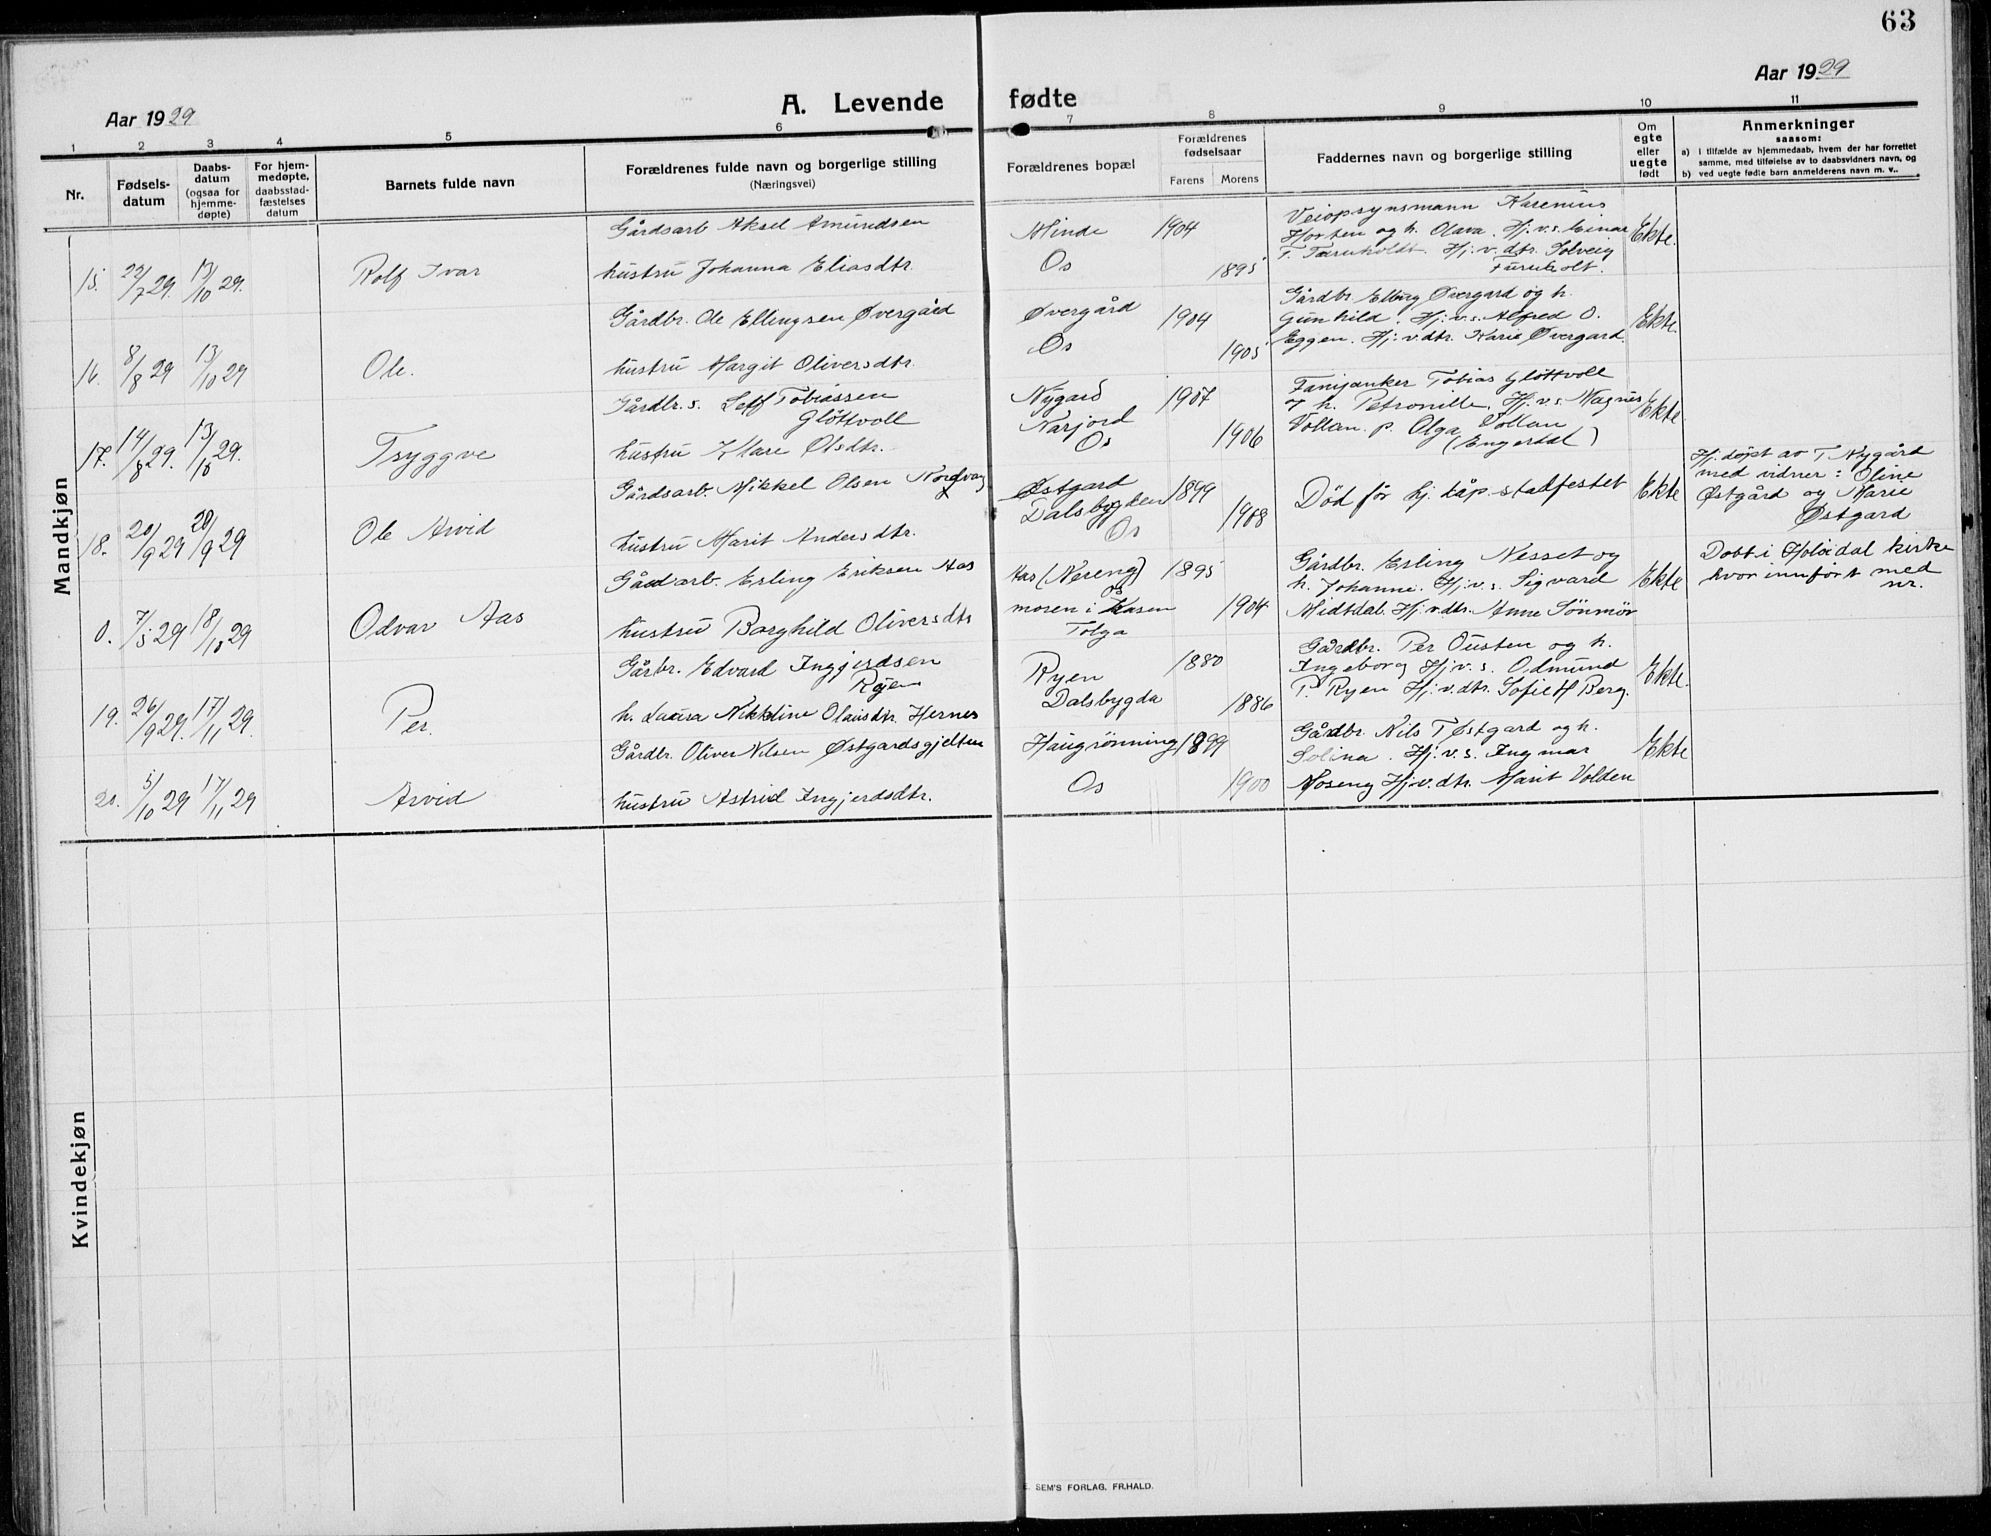 63
Aar 1929
A. Levende fødte
Aar 1929
1 2 3 4 5 6 7 8 9 10 11
Nr.
Fødsels-
datum
Daabs-
datum
(ogsaa for
hjemme-
døpte)
For hjem-
medøpte,
daabsstad-
fæstelses
datum
Barnets fulde navn
Forældrenes fulde navn og borgerlige stilling
(Næringsvei)
Forældrenes bopæl
Forældrenes
fødselsaar
Farens Morens
Faddernes navn og borgerlige stilling
Om
egte
eller
uegte
født
Anmerkninger
saasom:
a) i tilfælde av hjemmedaab, hvem der har forrettet
samme, med tilføielse av to daabsvidners navn, og
b) ved uegte fødte barn anmelderens navn m. v..
Mandkjøn
15. 22/7 29. 13/10 29.
Rolf Ivar
Gårdsarb Aksel Amundsen
hustru Johanna Eliasdtr.
Minde
Os
1904
1895
Veiopsynsmann Karenius
Horten og h. Olava. Hj. v. s. Einar
F. Furuholdt. Hj. v. dtr. Solveig
Furuholt.
Ekte.
16. 8/8 29 13/10 29
Ole.
Gårdbr. Ole Ellingsen Øvergård
hustru Margit Oliversdtr.
Øvergård
Os
1904
1905
Gårdbr. Elling Øvergard og h.
Gunhild. Hj. v. s. Alfred O.
Eggen. Hj. v. dtr. Karie Øvergard.
Ekte.
17. 14/8 29. 13/10 29.
Tryggve
Gårdbr. s. Leif Tobiassen
Gløttvoll
hustru Klare Olsdtr.
Nygard
Narjord
Os
1907
1906
Fanejunker Tobias Gløttvoll
og h. Petronille. Hj. v. s. Magnus
Vollan. p. Olga Vollan
(Engerdal)
Ekte
18. 20/9 29 20/9 29
Ole Arvid
Gårdsarb. Mikkel Olsen Nordvang
hustru Marit Andersdtr.
Østgard
Dalsbygden
Os
1899
1908
Død før hj. dåp. stadfestet
Ekte
Hj. døpt av T. Nygård
med vidner: Oline
Østgård og Marie
Østgard
0. 7/5 29 18/10 29
Odvar Aas
Gårdarb. Erling Eriksen Aas
hustru Borghild Oliversdtr
Aas (Nereng)
moren i Kåsen
Tolga
1895
1904
Gårdbr. Erling Nesset og
h. Johanne. Hj. v. s. Sigvard
Midtdal. Hj. v. dtr. Anne Sønmør
Ekte
Døbt i Holøidal kirke
hvor innført med
nr.
19. 26/9 29. 17/11 29.
Per.
Gårbr. Edvard Ingjerdsen
Ryen
h. Laura Nikoline Olausdtr. Hernes
Ryen
Dalsbygda
1880
1886
Gårdbr. Per Ousten og h.
Ingeborg Hj. v. s. Odmund
P. Ryen Hj. v. dtr. Sofie H Berg.
Ekte.
20. 5/10 29 17/11 29
Arvid
Gårdbr. Oliver Nilsen Østgardsgjelten
hustru Astrid Ingjerdsdtr.
Haugrønning
Os
1899
1900
Gårdbr. Nils T Østgard og h.
Solina. Hj. v. s. Ingmar
Moseng Hj. v. dtr. Marit Volden
Ekte
Kvindekjøn
E. SEM'S FORLAG, FR.HALD.